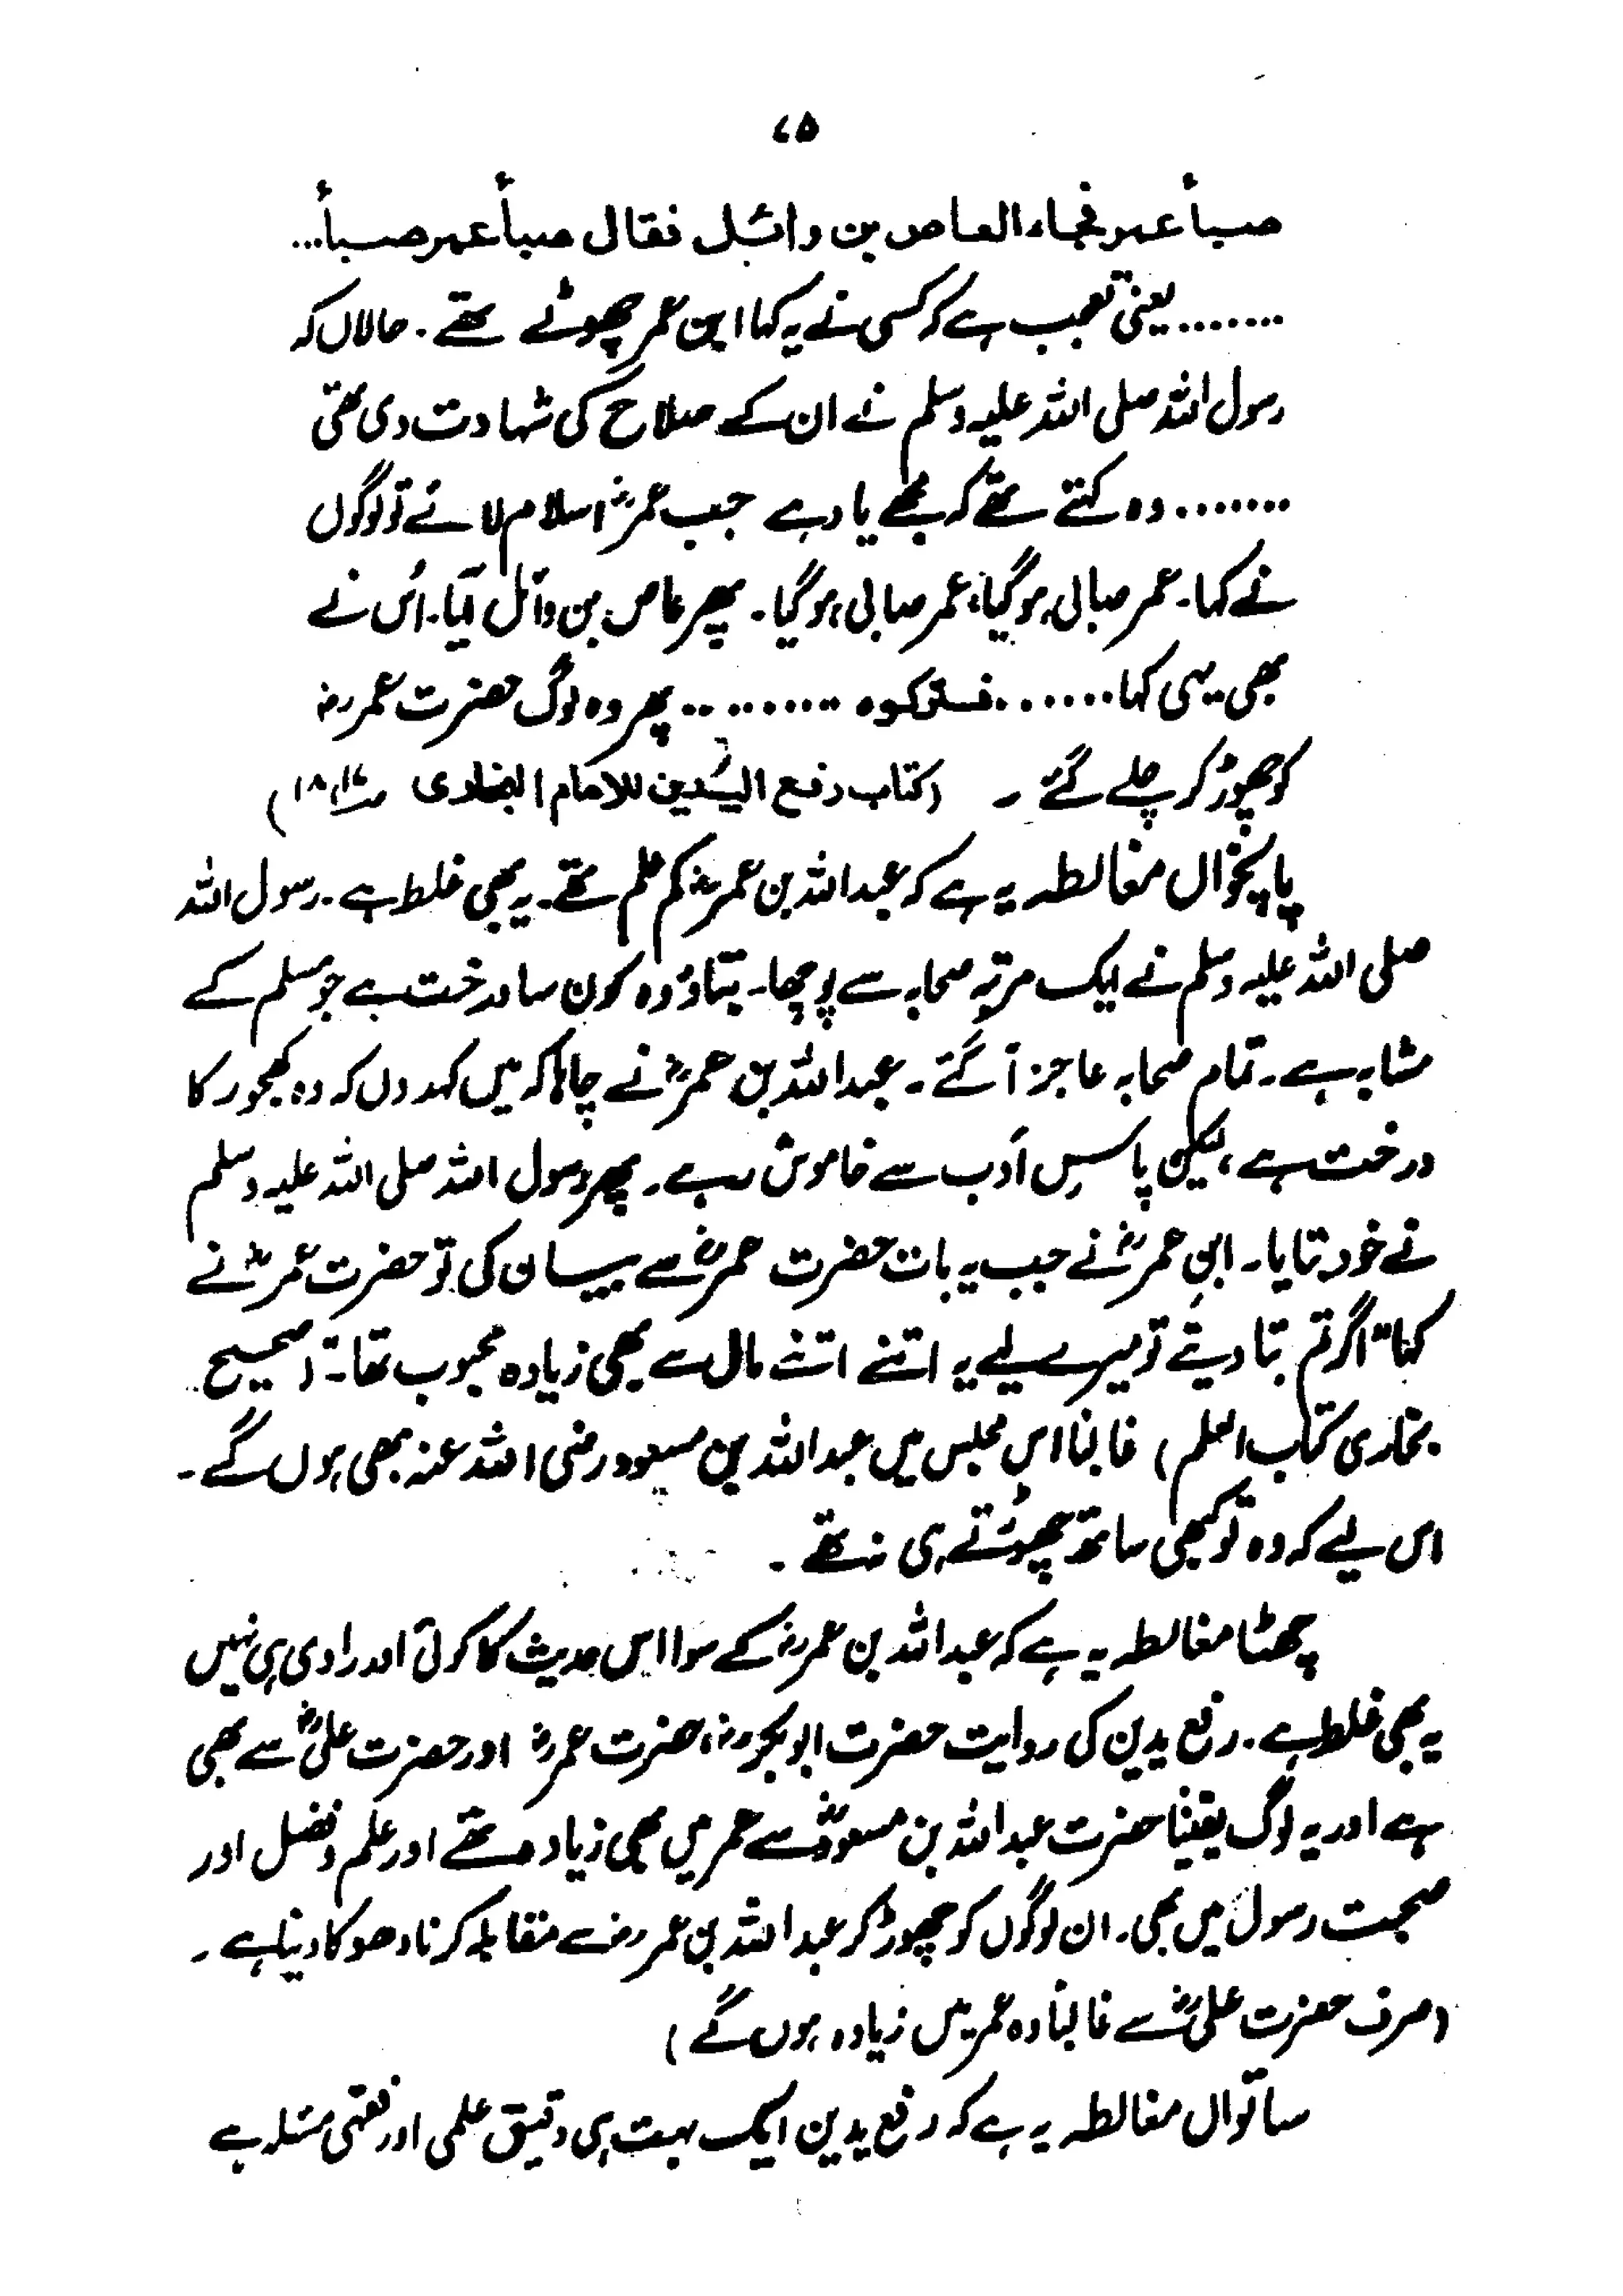 ۷۵
صبأ عمر فجاء العاص بن وائل فقال صبأ عمر صبأ...
....... یعنی تعجب ہے کہ کسی نے یہ کہا ابن عمر چھوٹے تھے۔ حالاں کہ
رسول اللہ صلی اللہ علیہ وسلم نے ان کے صلاح کی شہادت دی تھی
....... وہ کہتے تھے کہ مجھے یاد ہے جب عمرؓ اسلام لائے تو لوگوں
نے کہا۔ عمر صابی ہوگیا، عمر صابی ہوگیا۔ پھر عاص بن وائل آیا۔ اُس نے
بھی یہی کہا ...... فترکوه ......... پھر وہ لوگ حضرت عمررضؓ
کو چھوڑ کر چلے گئے ۔ (کتاب رفع الیدین للامام البخاری ص۱۷،۱۸)
پانچواں مغالطہ یہ ہے کہ عبداللہ بن عمرؓ کم علم تھے۔ یہ بھی غلط ہے۔ رسول اللہ
صلی اللہ علیہ وسلم نے ایک مرتبہ صحابہ سے پوچھا۔ بتاؤ وہ کون سا درخت ہے جو مسلم کے
مشابہ ہے۔ تمام صحابہ عاجز آ گئے۔ عبداللہ بن عمرؓ نے چاہا کہ میں کہدوں کہ وہ کھجور کا
درخت ہے، لیکن پاسِ ادب سے خاموش رہے۔ پھر رسول اللہ صلی اللہ علیہ وسلم
نے خود بتایا۔ ابنِ عمرؓ نے جب یہ بات حضرت عمرؓ سے بیان کی تو حضرت عمرؓ نے
کہا "اگر تم بتا دیتے تو میرے لیے یہ اتنے اتنے مال سے بھی زیادہ محبوب تھا۔" (صحیح
بخاری کتاب العلم) غالبًا اس مجلس میں عبداللہ بن مسعود رضی اللہ عنہ بھی ہوں گے۔
اس لیے کہ وہ تو کبھی ساتھ چھوڑتے ہی نہ تھے ۔
چھٹا مغالطہ یہ ہے کہ عبداللہ بن عمررضؓ کے سوا اس حدیث کا کوئی اور راوی ہی نہیں
یہ بھی غلط ہے۔ رفع یدین کی روایت حضرت ابوبکررضؓ، حضرت عمررضؓ اور حضرت علیؓ سے بھی
ہے اور یہ لوگ یقینًا حضرت عبداللہ بن مسعودؓ سے عمر میں بھی زیادہ تھے اور علم و فضل اور
صحبت رسولؐ میں بھی۔ ان لوگوں کو چھوڑ کر عبداللہ بن عمررضؓ سے مقابلہ کرنا دھوکا دینا ہے ۔
(صرف حضرت علیؓ سے غالبًا وہ عمر میں زیادہ ہوں گے)
ساتواں مغالطہ یہ ہے کہ رفع یدین ایک بہت ہی دقیق علمی اور فقہی مسئلہ ہے